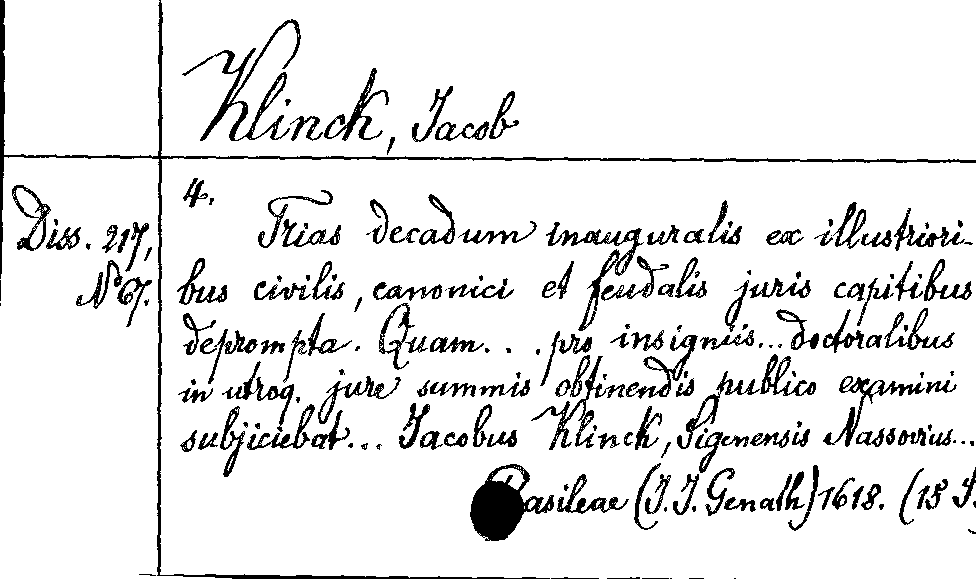 Klinck, Jacob
4.
Diss. 217,
No 67.
Trias decadum inauguralis ex illustriori-
bus civilis, canonici et feudalis juris capitibus
deprompta. Quam... pro insigniis... doctoralibus
in utroq. jure summis obtinendis publico examini
subjiciebat... Jacobus Klinck, Sigenensis Nassovius...
Basileae (J. J. Genath) 1618. (15 S.